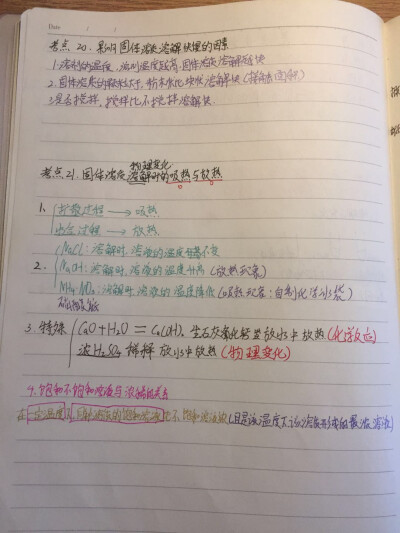 Date
考点20.影响固体溶质溶解快慢的因素
1.溶剂的温度,溶剂温度越高,固体溶质溶解越快
2.固体溶质的颗粒大小,粉末状比块状溶解快(接触面积)
3.是否搅拌,搅拌比不搅拌溶解快.
物理变化
考点21.固体溶质溶解时的吸热与放热
1、扩散过程 → 吸热
水合过程 → 放热
NaCl:溶解时,溶液的温度几乎不变
2.NaOH:溶解时,溶液的温度升高(放热现象)
NH4NO3:溶解时,溶液的温度降低(吸热现象:自制化学冰袋)
硝酸铵
3.特殊 CaO+H2O=Ca(OH)2 生石灰氧化钙置放水中放热(化学反应)
浓H2SO4稀释 放水中放热(物理变化)
4.饱和不饱和溶液与浓稀的关系
在一定温度下,同种溶质的饱和溶液比不饱和溶液浓(且是该温度下该溶质形成的最浓溶液)